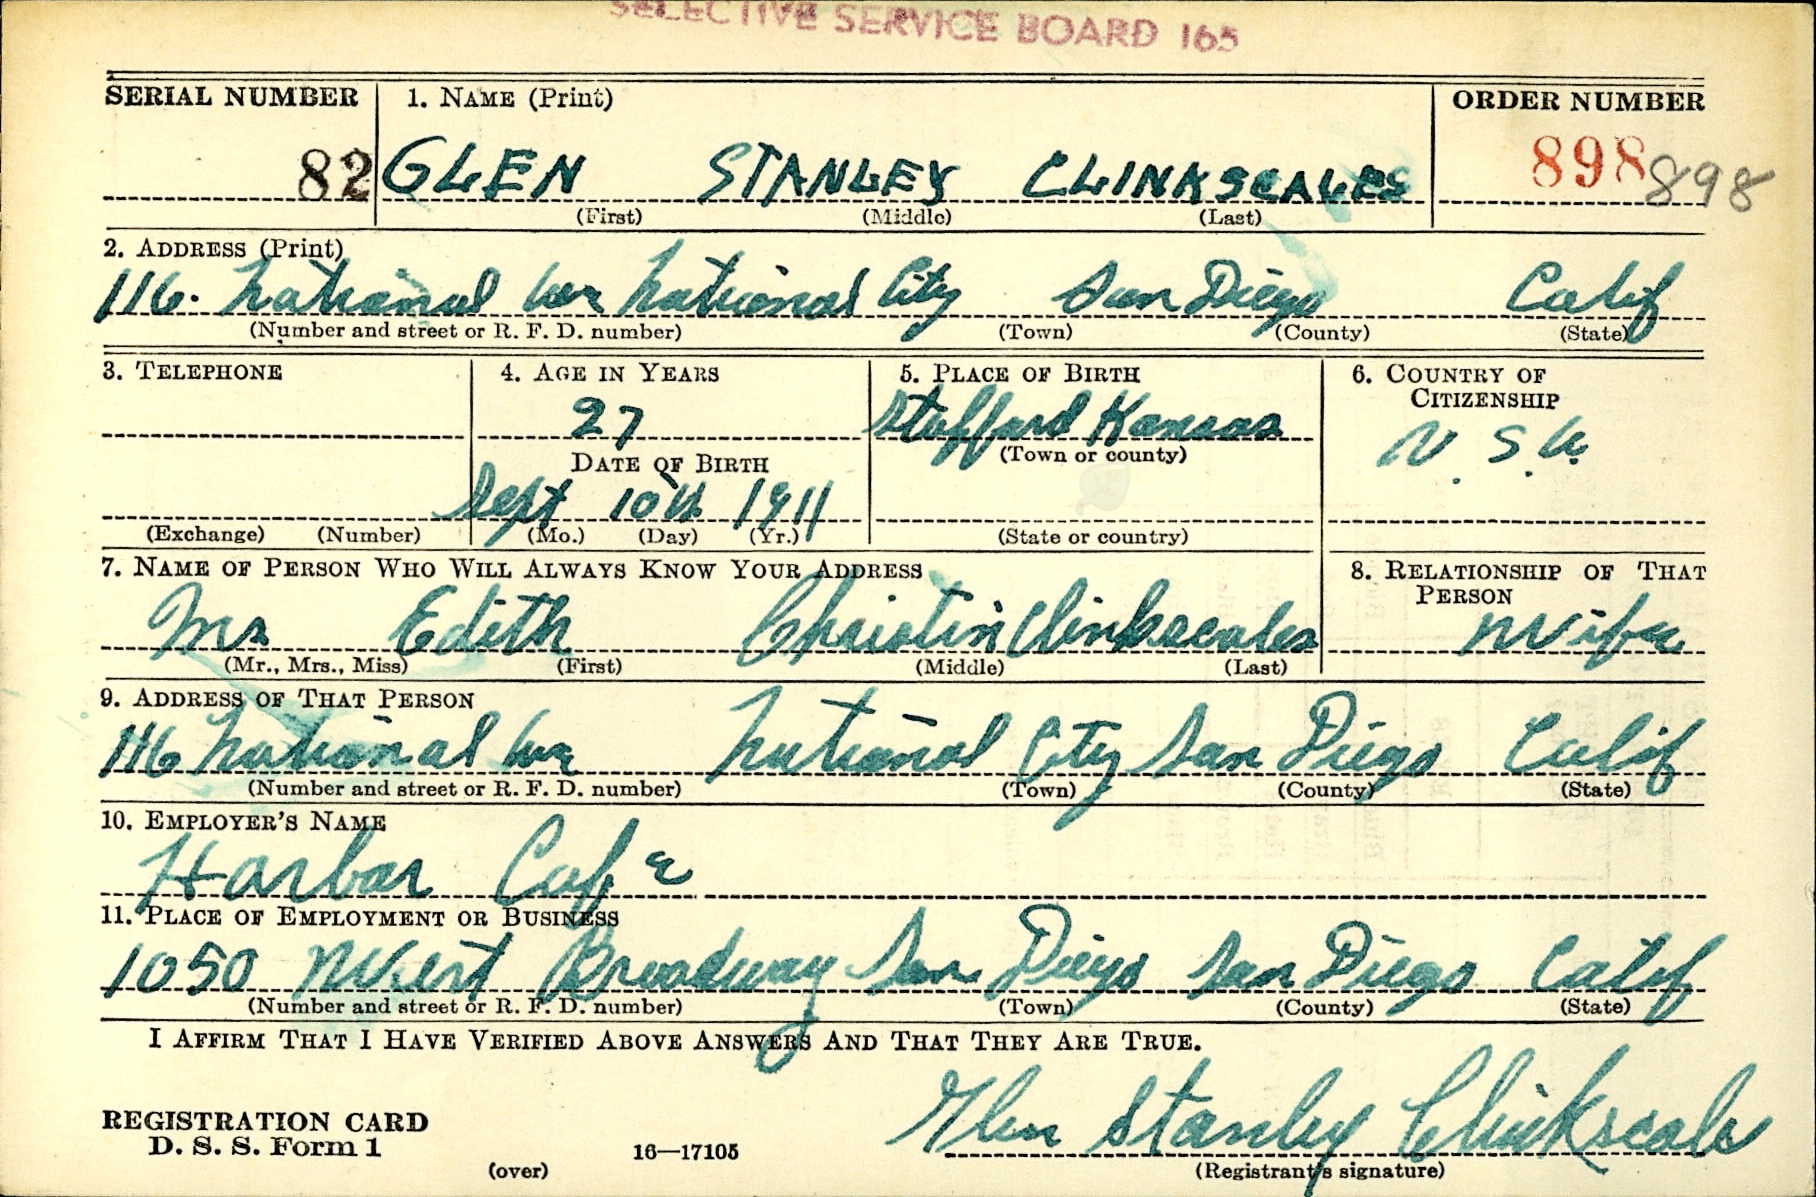 SELECTIVE SERVICE BOARD 165
SERIAL NUMBER 1. NAME (Print) ORDER NUMBER
82 GLEN STANLEY CLINKSCALES 898 898
(First) (Middle) (Last)
2. ADDRESS (Print)
116. National Ave National City San Diego Calif
(Number and street or R. F. D. number) (Town) (County) (State)
3. TELEPHONE 4. AGE IN YEARS 5. PLACE OF BIRTH 6. COUNTRY OF
CITIZENSHIP
27 Stafford Kansas U. S. A.
DATE OF BIRTH (Town or county)
Sept 10th 1911
(Exchange) (Number) (Mo.) (Day) (Yr.) (State or country)
7. NAME OF PERSON WHO WILL ALWAYS KNOW YOUR ADDRESS 8. RELATIONSHIP OF THAT
PERSON
Mrs Edith Christin Clinkscales Wife
(Mr., Mrs., Miss) (First) (Middle) (Last)
9. ADDRESS OF THAT PERSON
116 National Ave National City San Diego Calif
(Number and street or R. F. D. number) (Town) (County) (State)
10. EMPLOYER'S NAME
Harbor Cafe
11. PLACE OF EMPLOYMENT OR BUSINESS
1050 West Broadway San Diego San Diego Calif
(Number and street or R. F. D. number) (Town) (County) (State)
I AFFIRM THAT I HAVE VERIFIED ABOVE ANSWERS AND THAT THEY ARE TRUE.
Glen Stanley Clinkscales
REGISTRATION CARD
D. S. S. Form 1 16—17105
(over) (Registrant's signature)